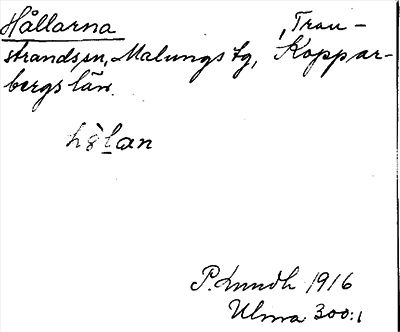 Hållarna , Tran-
strands sn, Malungs tg, Koppar-
bergs län.
hò̀lan
P. Lundh 1916
Ulma 300:1